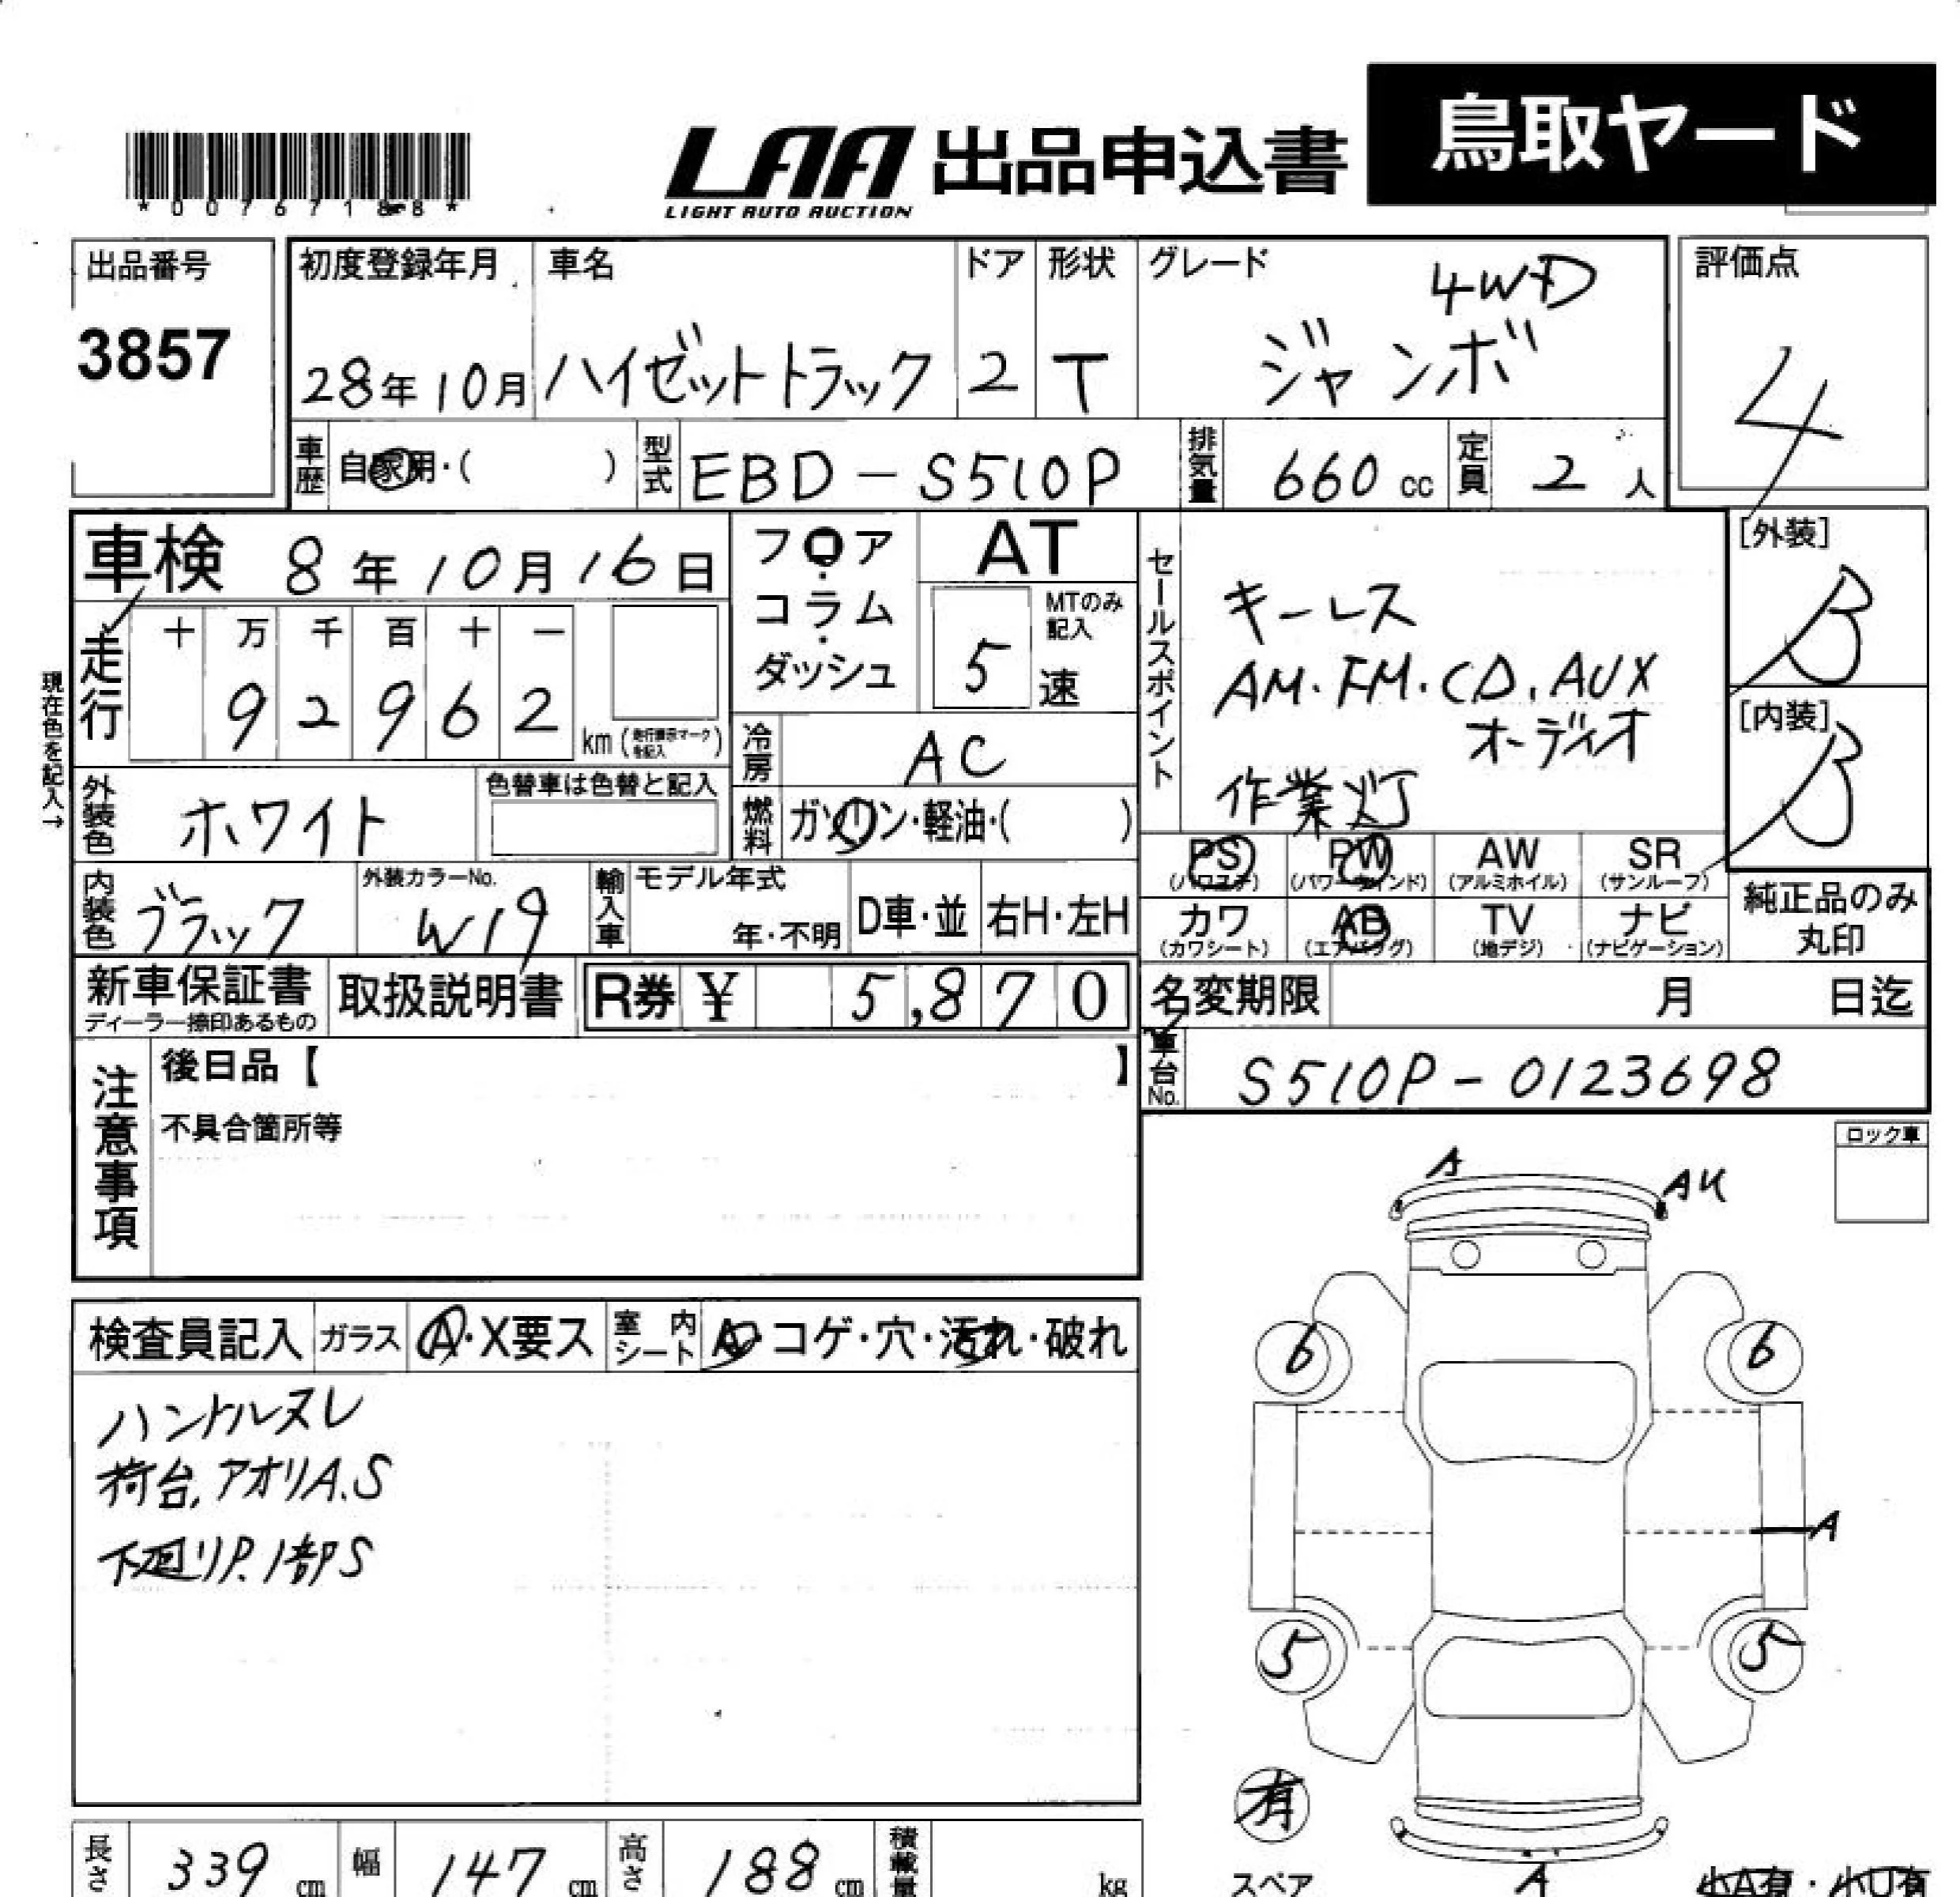 鳥取ヤード
LAA 出品申込書
LIGHT AUTO AUCTION
*0076718-8*
出品番号
3857
初度登録年月
28年10月
車名
ハイゼットトラック
ドア
2
形状
T
グレード
4WD
ジャンボ
評価点
4
車歴 自家用・( )
型式 EBD-S510P
排気量 660 cc
定員 2 人
[外装]
B
[内装]
B
車検 8年10月16日
フロア・コラム・ダッシュ
AT
MTのみ記入
5 速
走行
十 万 千 百 十 一
9 2 9 6 2
km (走行表示マークを記入)
現在色を記入→
冷房 AC
外装色 ホワイト
色替車は色替と記入
燃料 ガソリン・軽油・( )
セールスポイント
キーレス
AM.FM.CD.AUX
オーディオ
作業灯
内装色 ブラック
外装カラーNo.
W19
輸入車
モデル年式
年・不明
D車・並
右H・左H
PS (パワステ)
PW (パワーウインド)
AW (アルミホイル)
SR (サンルーフ)
カワ (カワシート)
AB (エアバッグ)
TV (地デジ)
ナビ (ナビゲーション)
純正品のみ
丸印
新車保証書
ディーラー捺印あるもの
取扱説明書
R券 ¥ 5,870
名変期限 月 日迄
車台No. S510P-0123698
注意事項
後日品【 】
不具合箇所等
ロック車
検査員記入
ガラス A・X要ス
室内シート A・コゲ・穴・汚れ・破れ
ハンドルヌレ
荷台.アオリA.S
下廻りP.1部S
A
AU
6
6
A
5
5
有
スペア
A
小A有・小U有
長さ 339 cm
幅 147 cm
高さ 188 cm
積載量 kg